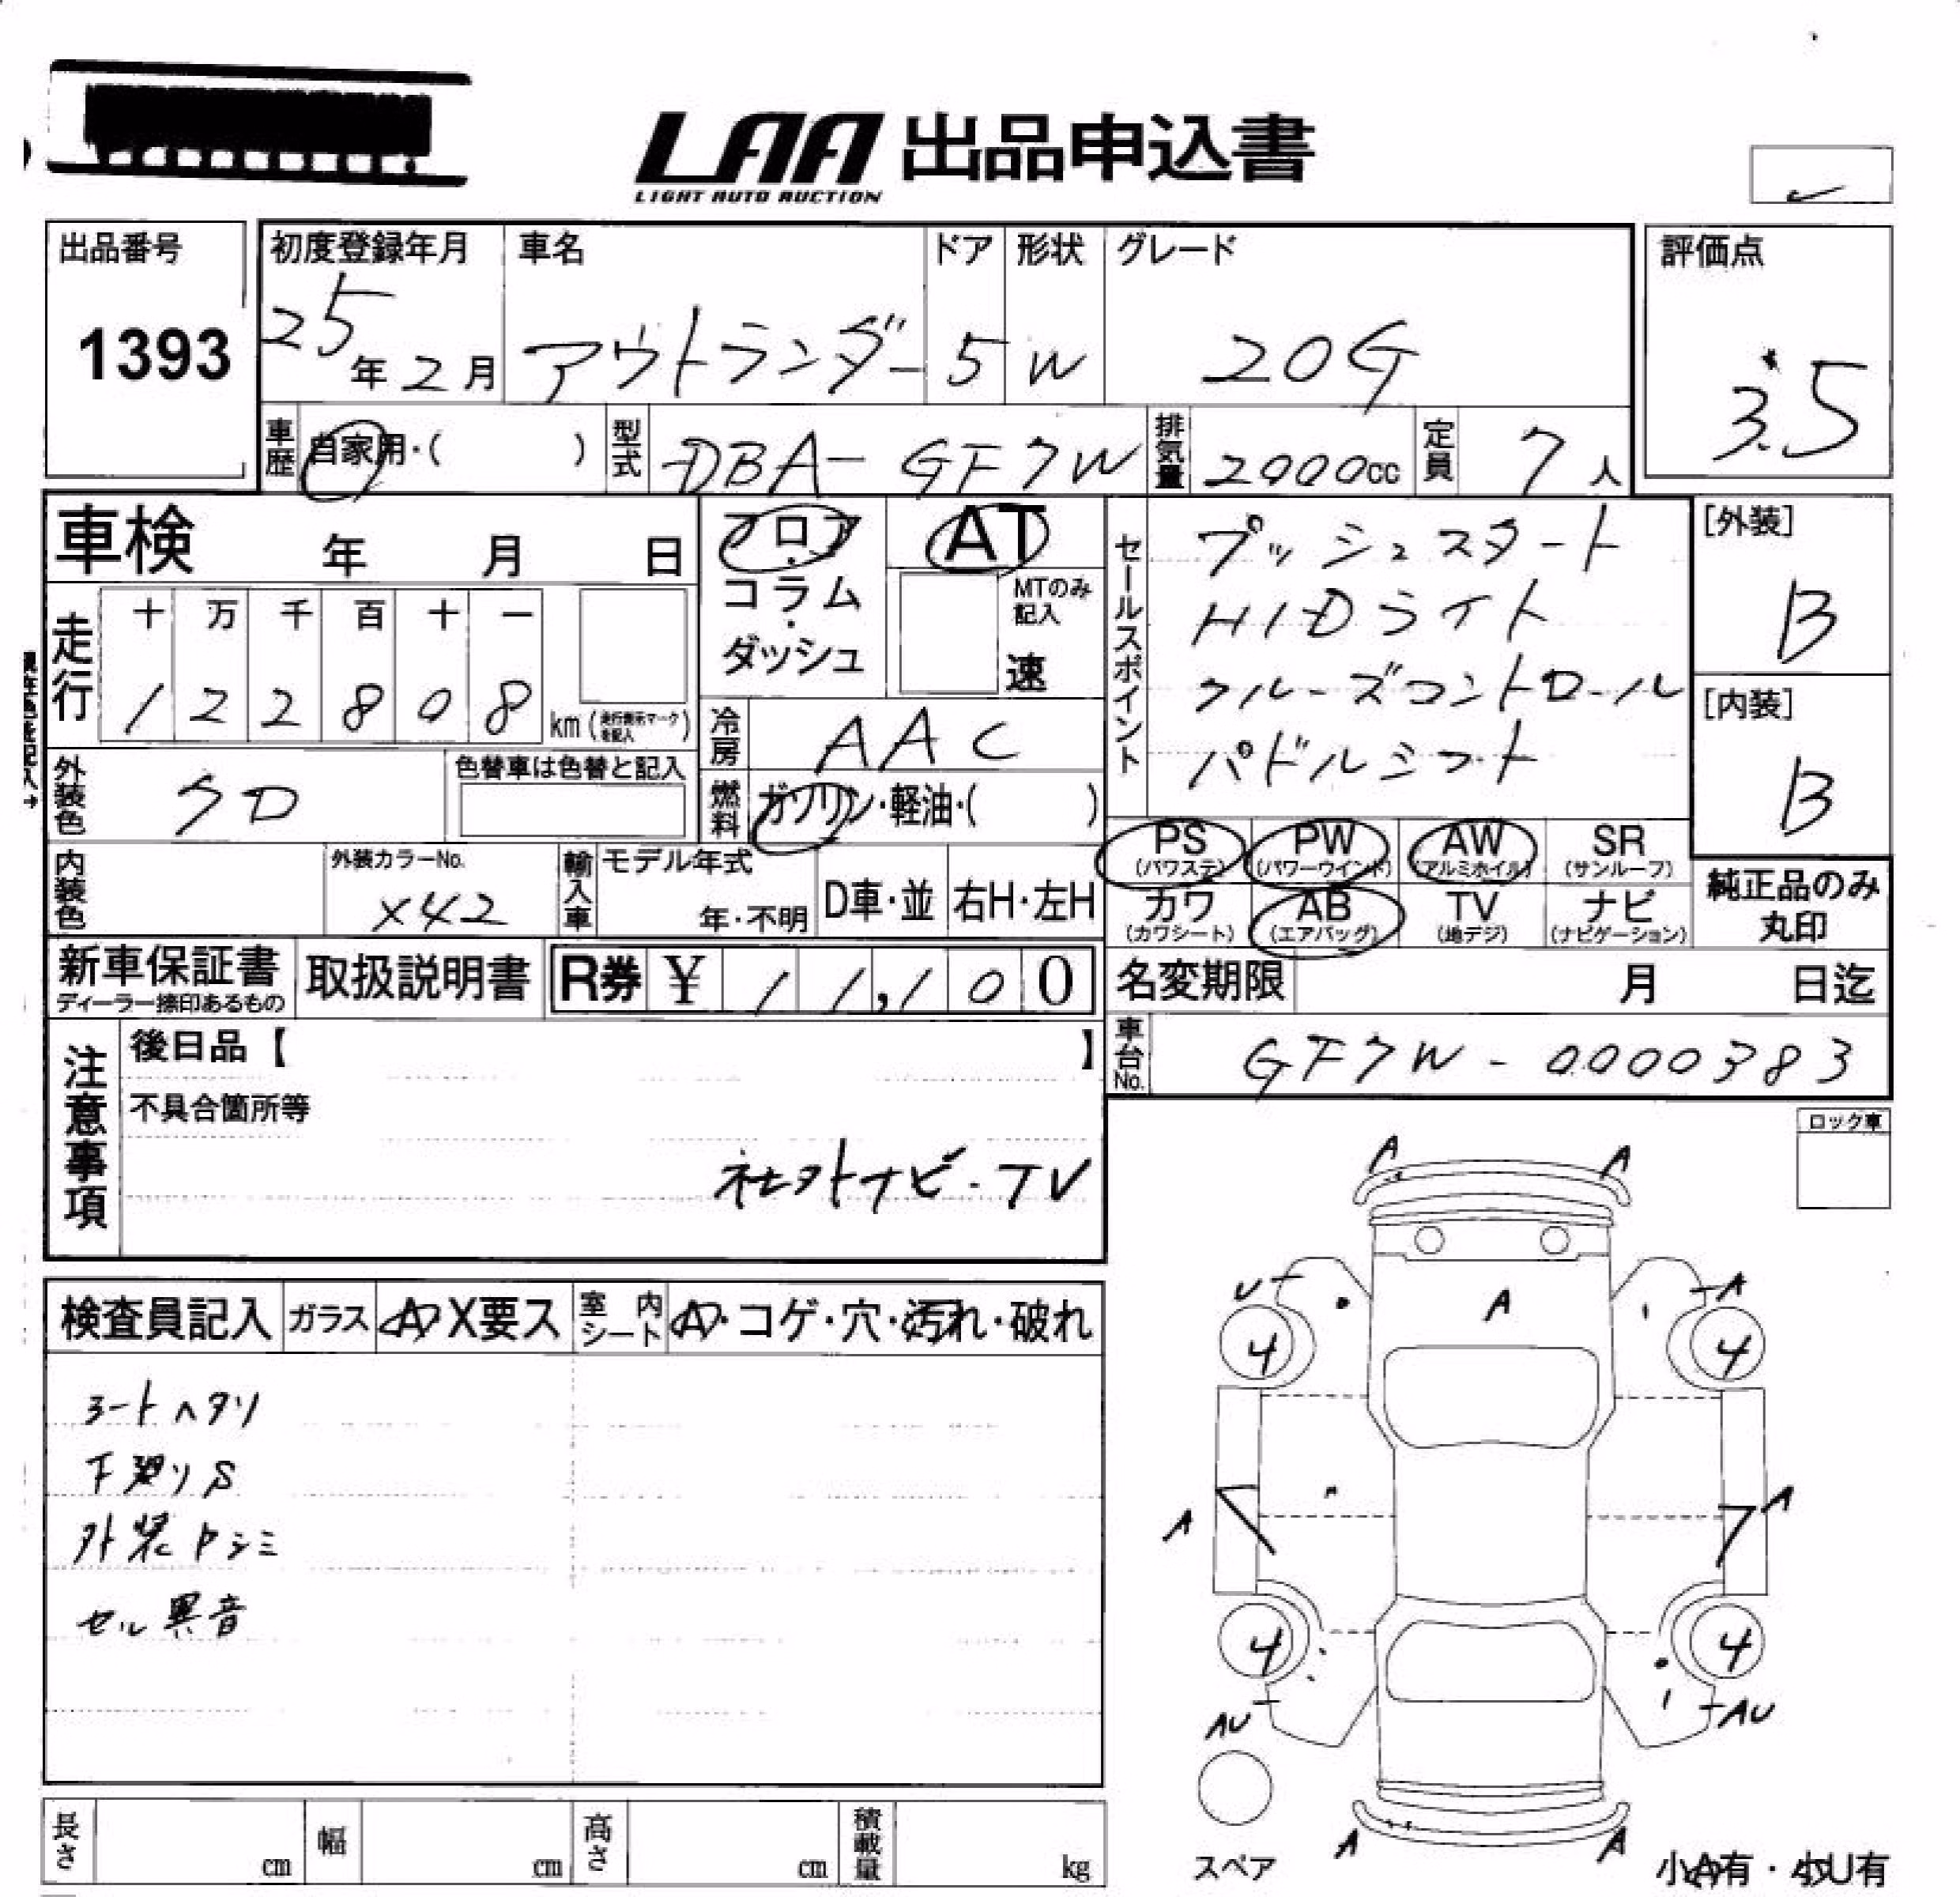 LAA 出品申込書
LIGHT AUTO AUCTION
出品番号
1393
初度登録年月
25年2月
車名
アウトランダー
ドア
5
形状
W
グレード
20G
評価点
3.5
車歴
自家用・( )
型式
DBA-GF7W
排気量
2000cc
定員
7人
車検 年 月 日
フロア・コラム・ダッシュ
AT
MTのみ記入
速
セールスポイント
プッシュスタート
HIDライト
クルーズコントロール
パドルシフト
[外装]
B
[内装]
B
走行
十 万 千 百 十 一
1 2 2 8 0 8
km(走行表示マークを記入)
冷房
AAC
外装色
クロ
色替車は色替と記入
燃料
ガソリン・軽油・( )
PS (パワステ)
PW (パワーウインド)
AW (アルミホイル)
SR (サンルーフ)
カワ (カワシート)
AB (エアバッグ)
TV (地デジ)
ナビ (ナビゲーション)
純正品のみ丸印
内装色
外装カラーNo.
X42
輸入車
モデル年式
年・不明
D車・並
右H・左H
新車保証書
ディーラー捺印あるもの
取扱説明書
R券 ¥ 11,100
名変期限 月 日迄
車台No.
GF7W-0000383
注意事項
後日品【 】
不具合箇所等
社外ナビ・TV
ロック車
検査員記入
ガラス
A X要ス
室内シート
A・コゲ・穴・汚れ・破れ
シートヘタリ
下廻りS
外装 シミ
セル異音
A A
U A A
4 4
A A
4 4
AU AU
A A
スペア
小A有・小U有
長さ cm
幅 cm
高さ cm
積載量 kg